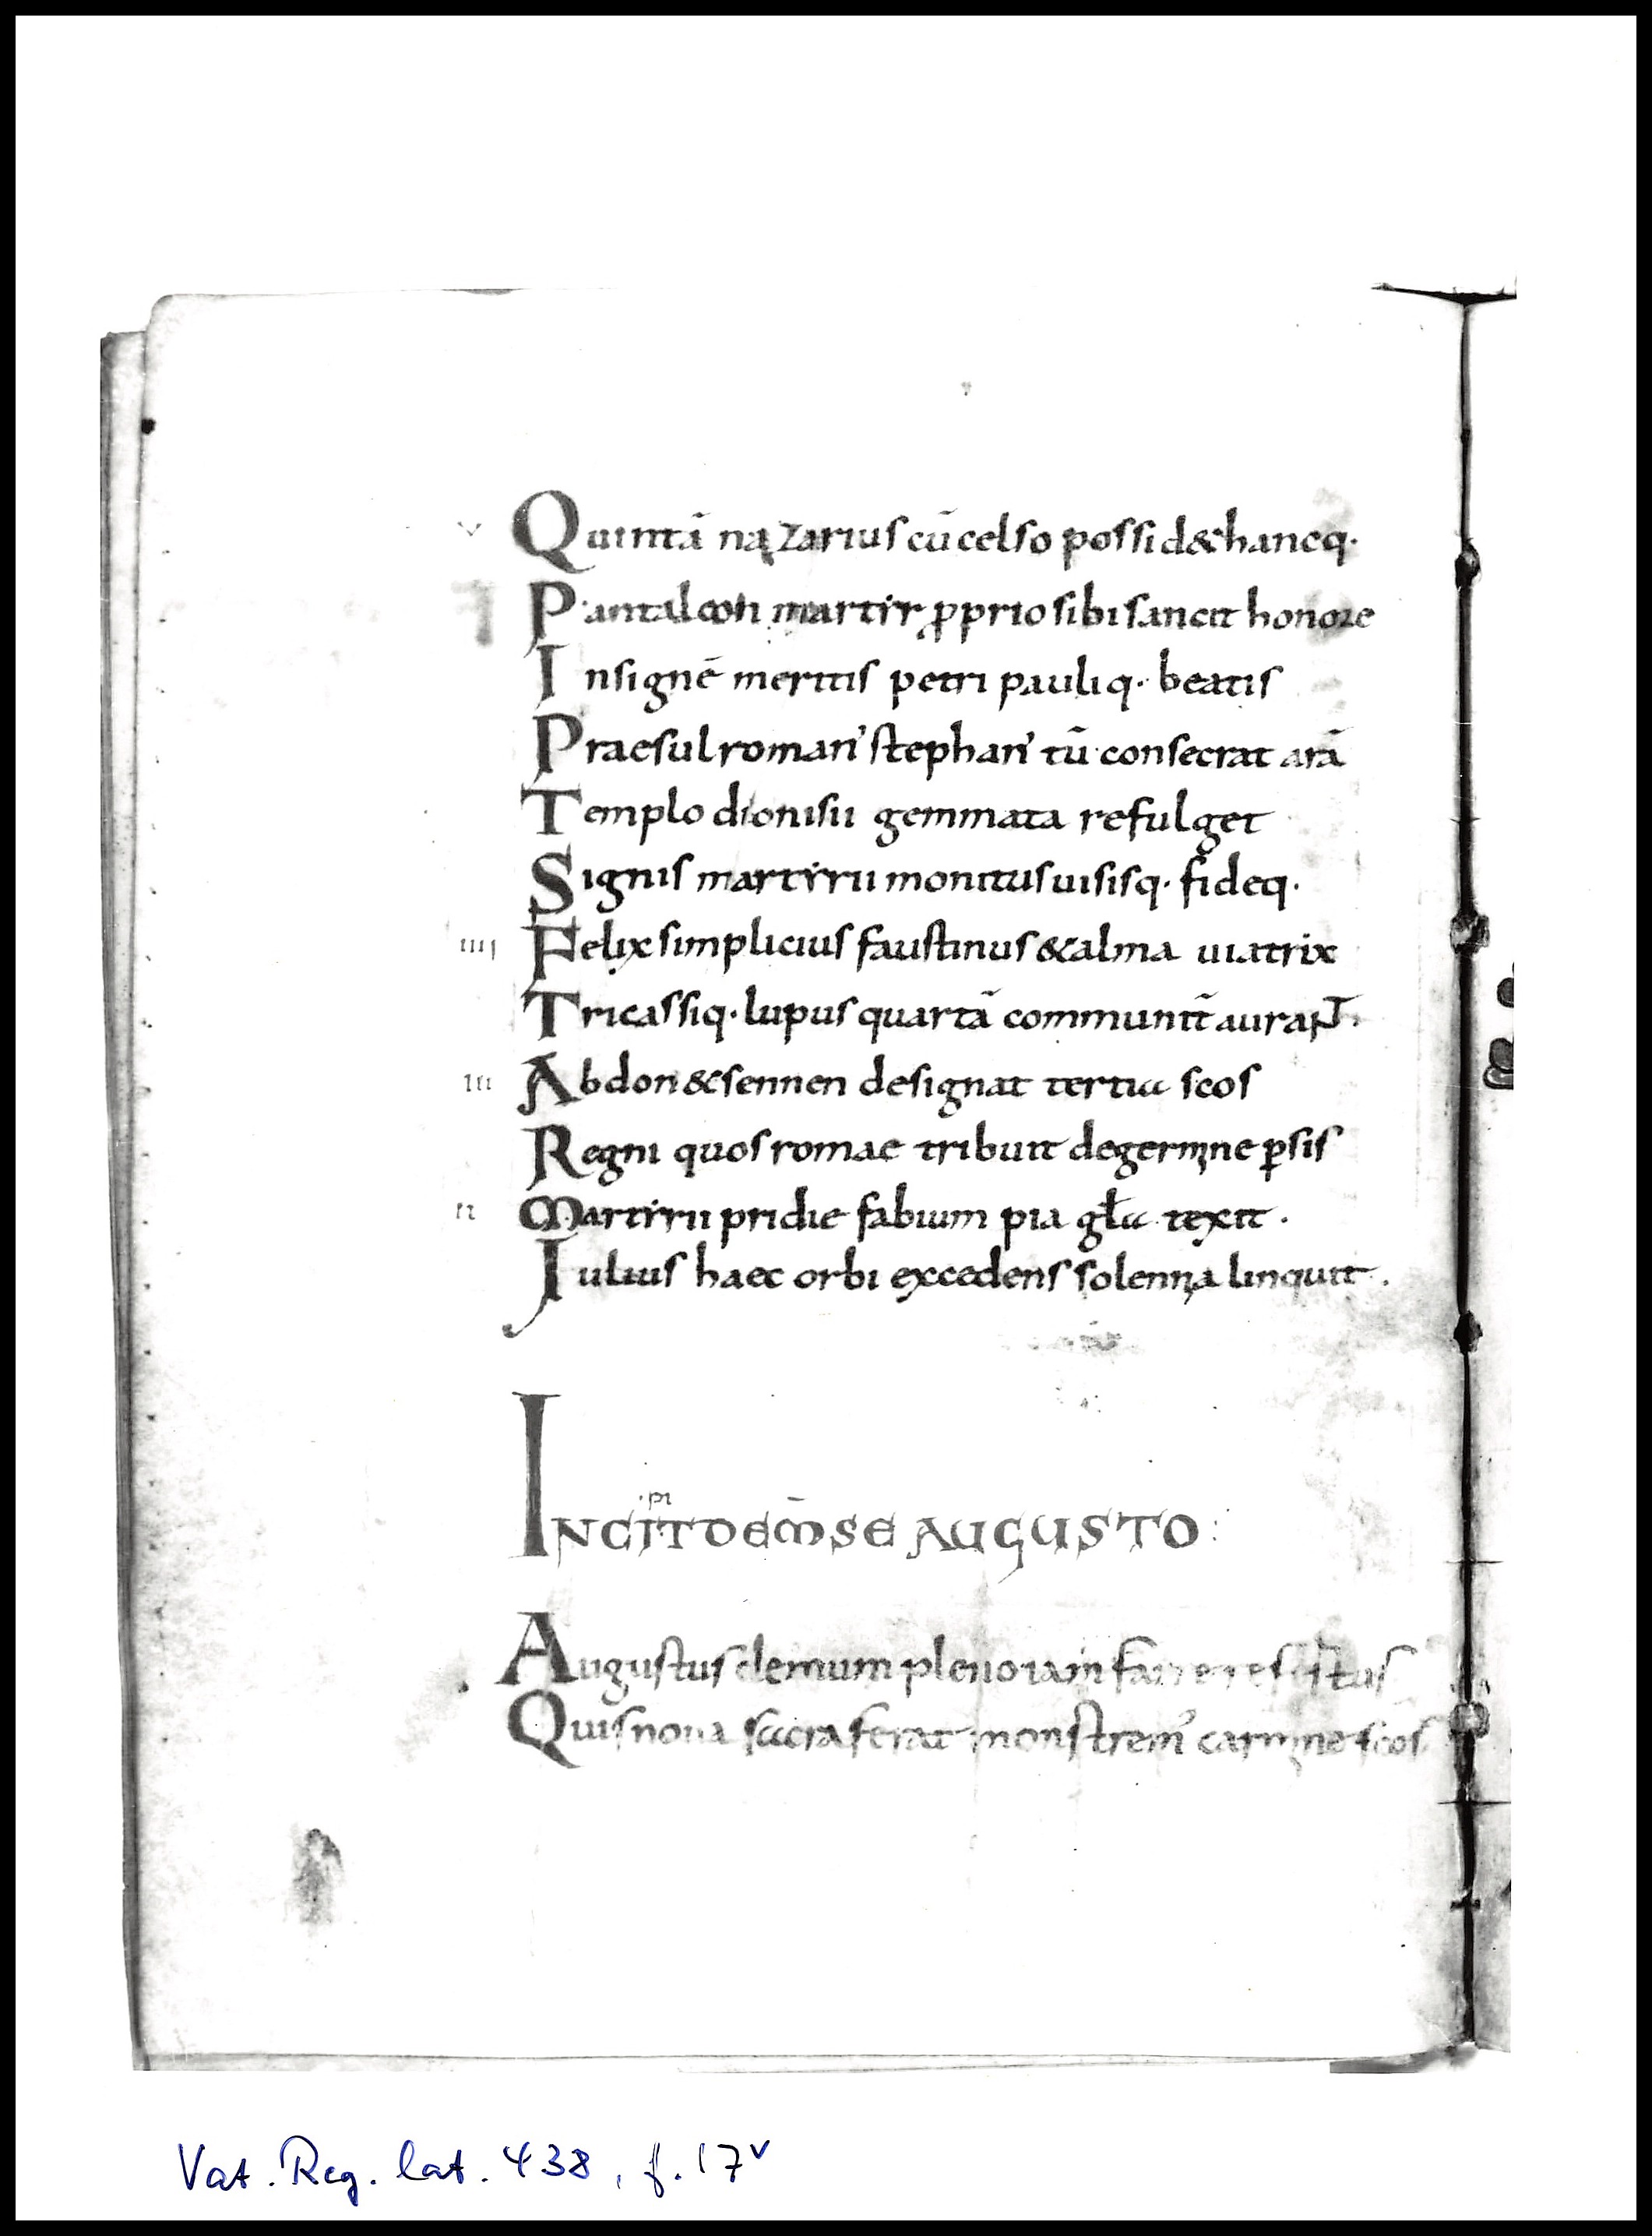 v Quintā nazarius cū celso possid& hancq·
Pantaleon martir ꝓprio sibi sancit honore
Insignē meritis petri pauliq· beatis
Praesul romani stephani tū consecrat arā
Templo dionisii gemmata refulget
Signis martirii monitus uisisq· fideq·
iiij Felix simplicius faustinus & alma uiatrix
Tricassiq· lupus quartā communīt auraɴ̄T.
iii Abdon & sennen designat tertia scos
Regni quos romae tribuit de germine ꝑsis
ii Martirii pridie fabium pia gła texit .
Iulius haec orbi excedens solennia linquit .
INCIPIT DE M̄SE AUGUSTO :
Augustus demum pleno iam farre
Quis noua sacra ferat monstrem' carmine scos
Vat. Reg. lat. 438, f. 17v